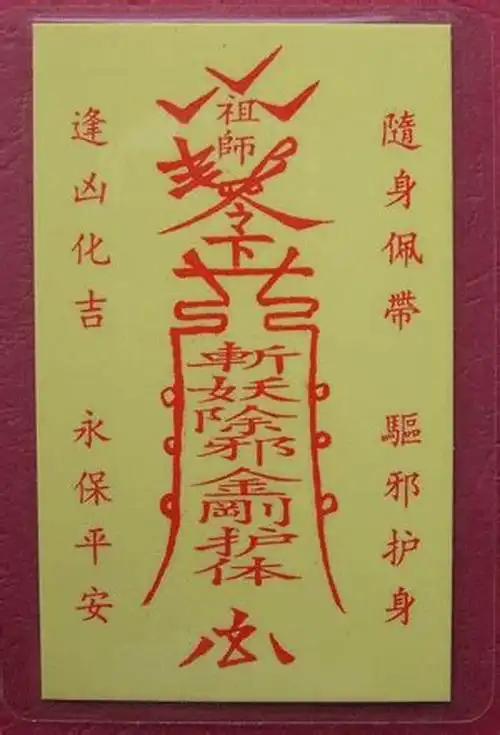 隨身佩帶 驅邪护身
祖師
令
下
斬妖除邪金剛护体
逢凶化吉 永保平安